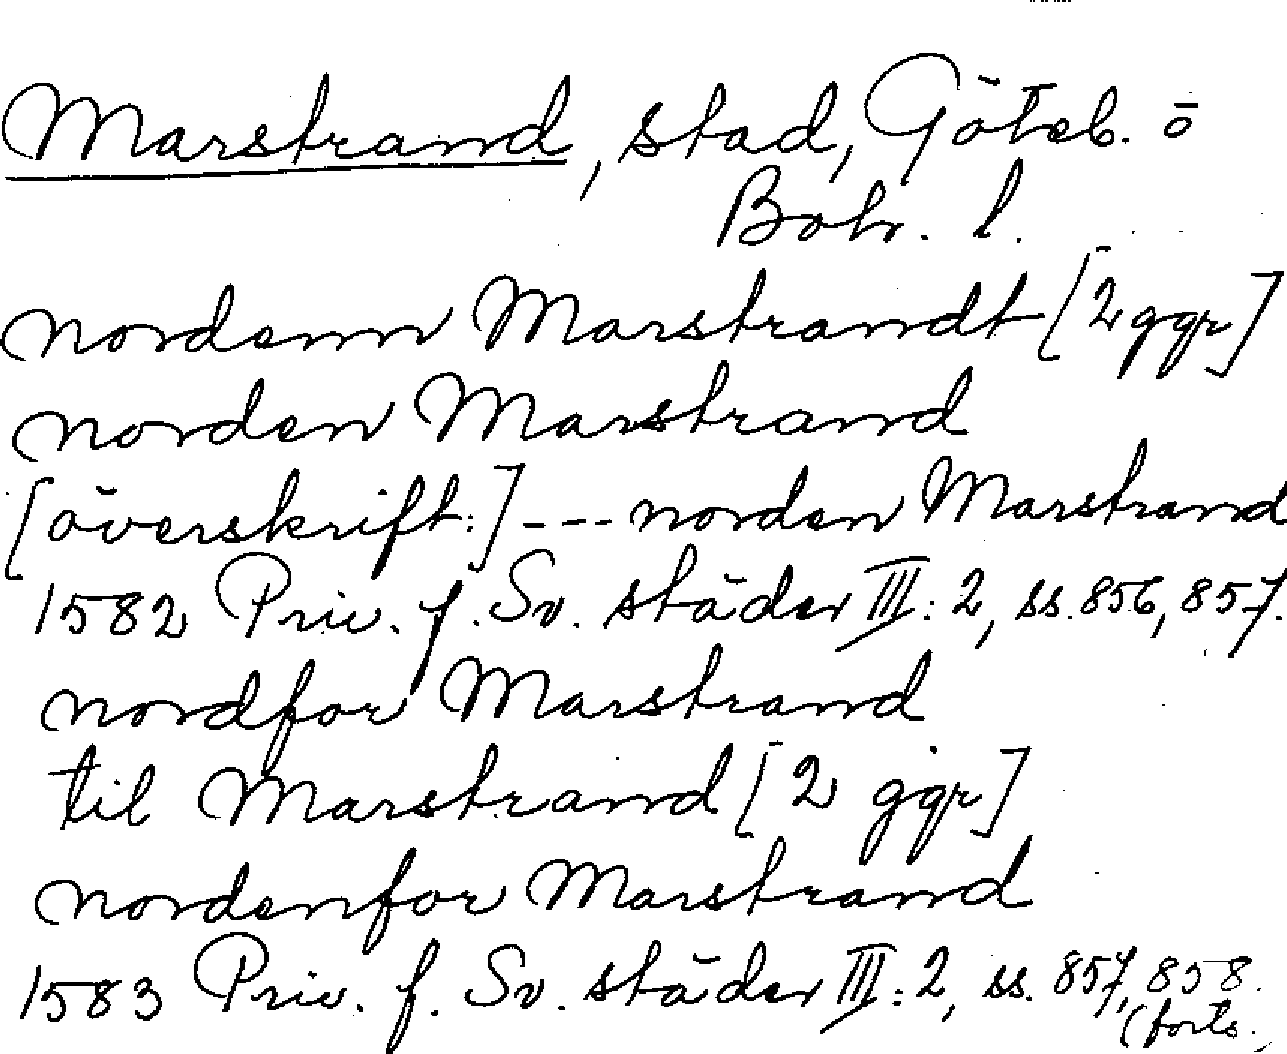 Marstrand, stad, Göteb. o
Boh. l.
nordenn Marstrandt [2 ggr]
norden Marstrand
[överskrift:] --- norden Marstrand
1582 Priv. f. Sv. städer III: 2, ss. 856, 857.
nordfor Marstrand
til Marstrand [2 ggr]
nordenfor Marstrand
1583 Priv. f. Sv. städer III: 2, ss. 857, 858.
(forts.